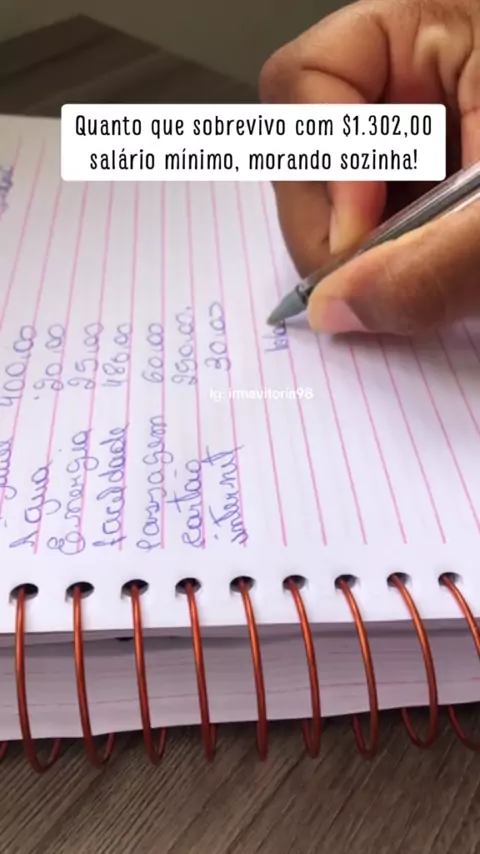 Quanto que sobrevivo com $1.302,00
salário mínimo, morando sozinha!
400,00
Água 20,00
Energia 25,00
faculdade 480,00
Passagem 60,00
cartão 250,00
internet 30,00
Ig: irmavitoria98